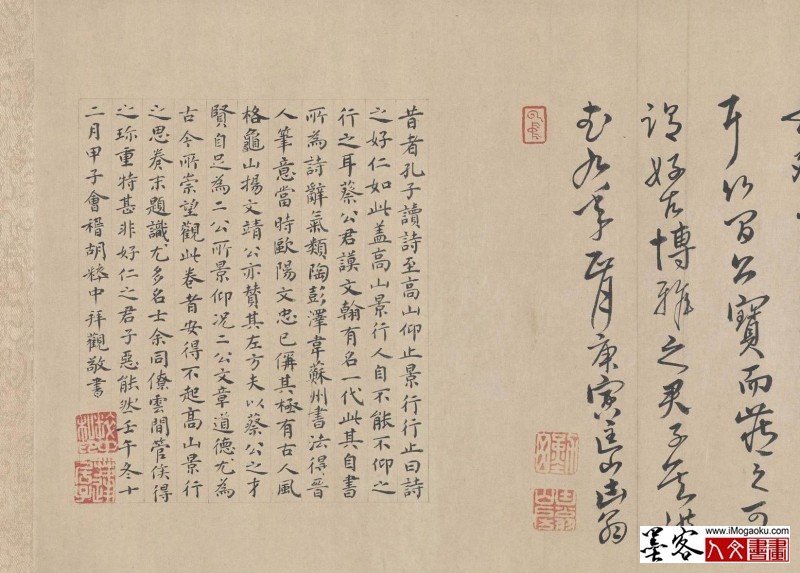 耳行百公寶而藏之可
謂好古博雅之君子矣洪
武九年正月庚寅匡山老翁
昔者孔子讀詩至高山仰止景行行止曰詩
之好仁如此盖高山景行人自不能不仰之
行之耳蔡公君謨文翰有名一代此其自書
所為詩辭氣類陶彭澤韋蘇州書法得晉
人筆意當時歐陽文忠已偁其極有古人風
格龜山楊文靖公亦贊其左方夫以蔡公之才
賢自足為二公所景仰况二公文章道德尤為
古今所崇望觀此卷者安得不起高山景行
之思卷末題識尤多名士余同僚雲間管侯得
之珎重特甚非好仁之君子惡能然壬午冬十
二月甲子會稽胡粹中拜觀敬書
墨客
www.iMogaoku.com
人文書畫